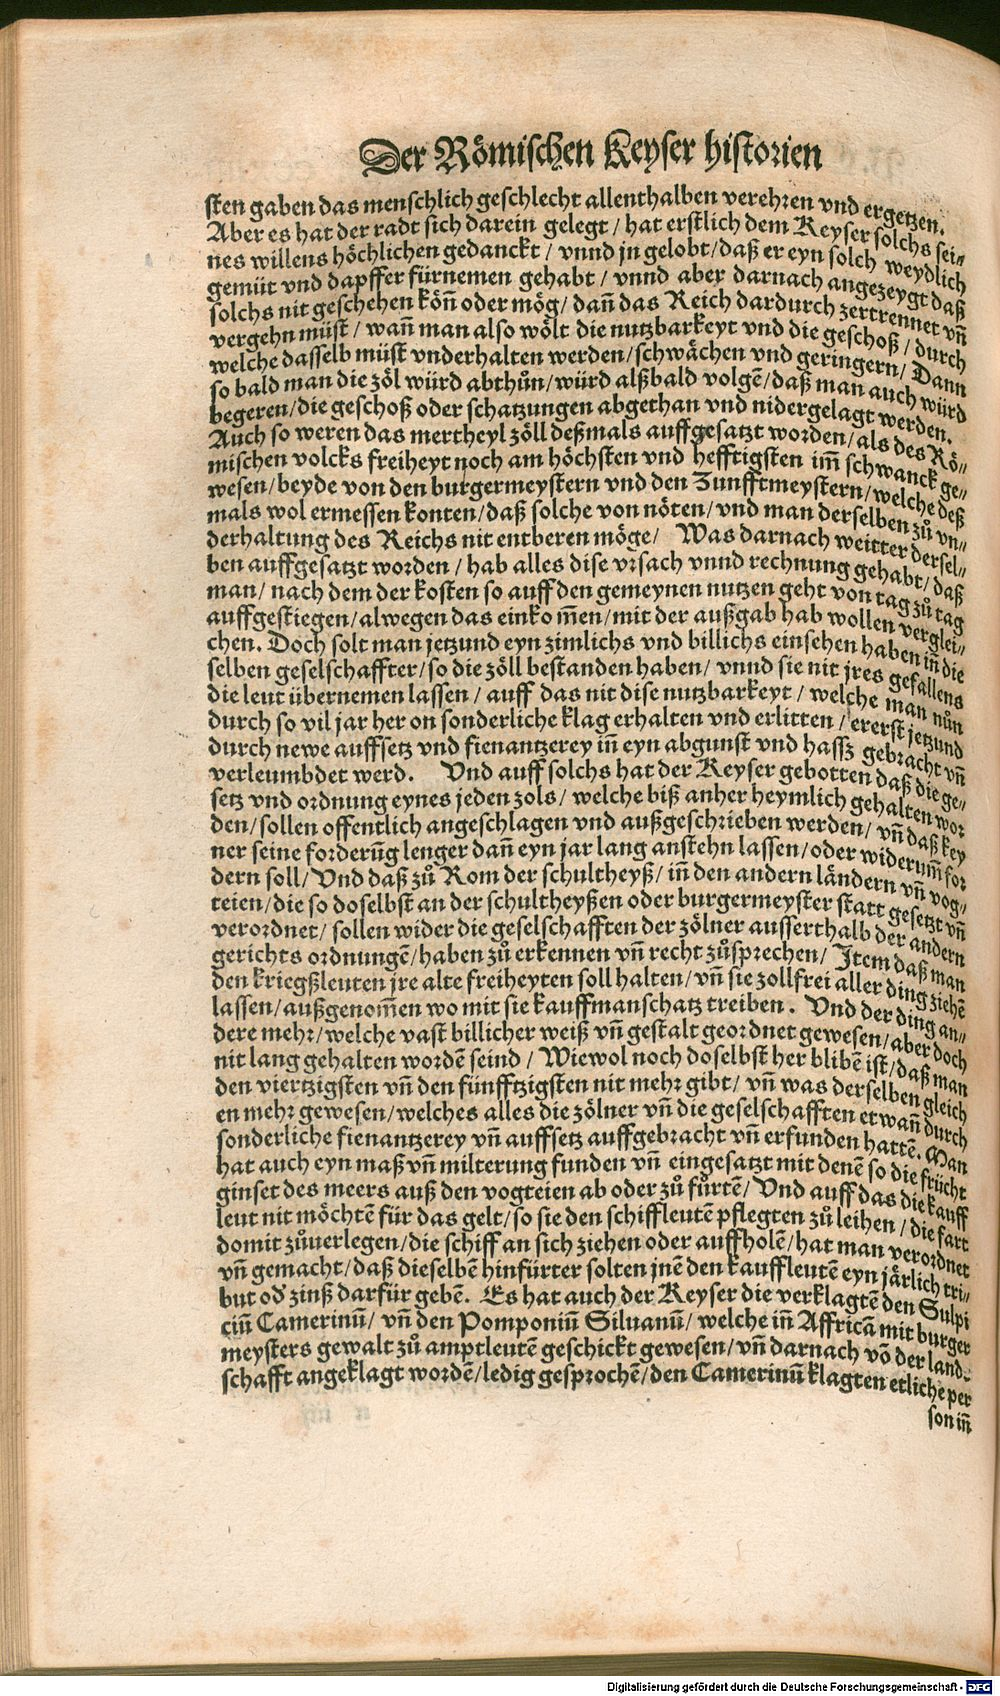 Der Römischen Keyser historien
sten gaben das menschlich geschlecht allenthalben verehren vnd ergetzen.
Aber es hat der radt sich darein gelegt / hat erstlich dem Keyser solchs sei⸗
nes willens höchlichen gedanckt / vnnd jn gelobt / daß er eyn solch weydlich
gemüt vnd dapffer fürnemen gehabt / vnnd aber darnach angezeygt daß
solchs nit geschehen könn̄ oder mög / dan̄ das Reich dardurch zertrennet vn̄
vergehn müst / wan̄ man also wölt die nutzbarkeyt vnd die geschoß / durch
welche dasselb müst vnderhalten werden / schwächen vnd geringern / Dann
so bald man die zöl würd abthůn / würd alßbald volgē / daß man auch würd
begeren / die geschoß oder schatzungen abgethan vnd nidergelagt werden.
Auch so weren das mertheyl zöll deßmals auffgesatzt worden / als des Rö⸗
mischen volcks freiheyt noch am höchsten vnd hefftigsten im̄ schwanck ge⸗
wesen / beyde von den burgermeystern vnd den Zunfftmeystern / welche deß
mals wol ermessen konten / daß solche von nöten / vnd man derselben zů vn⸗
derhaltung des Reichs nit entberen möge / Was darnach weitter dersel⸗
ben auffgesatzt worden / hab alles dise vrsach vnnd rechnung gehabt / daß
man / nach dem der kosten so auff den gemeynen nutzen geht von tag zů tag
auffgestiegen / alwegen das einkom̄en / mit der außgab hab wollen verglei⸗
chen. Doch solt man jetzund eyn zimlichs vnd billichs einsehen haben in̄ die
selben geselschaffter / so die zöll bestanden haben / vnnd sie nit jres gefallens
die leut übernemen lassen / auff das nit dise nutzbarkeyt / welche man nůn
durch so vil jar her on sonderliche klag erhalten vnd erlitten / ererst jetzund
durch newe auffsetz vnd fienantzerey in̄ eyn abgunst vnd hassz gebracht vn̄
verleumbdet werd. Vnd auff solchs hat der Keyser gebotten daß die ge⸗
setz vnd ordnung eynes jeden zols / welche biß anher heymlich gehalten wor
den / sollen offentlich angeschlagen vnd außgeschrieben werden / vn̄ daß key
ner seine forderūg lenger dan̄ eyn jar lang anstehn lassen / oder widerum̄ for
dern soll / Vnd daß zů Rom der schultheyß / in̄ den andern ländern vn̄ vog⸗
teien / die so doselbst an der schultheyßen oder burgermeyster statt gesetzt vn̄
verordnet / sollen wider die geselschafften der zölner ausserthalb der andern
gerichts ordnungē / haben zů erkennen vn̄ recht zůsprechen / Item daß man
den kriegßleuten jre alte freiheyten soll halten / vn̄ sie zollfrei aller ding ziehē
lassen / außgenom̄en wo mit sie kauffmanschatz treiben. Vnd der ding an⸗
dere mehr / welche vast billicher weiß vn̄ gestalt geordnet gewesen / aber doch
nit lang gehalten wordē seind / Wiewol noch doselbst her blibē ist / daß man
den viertzigsten vn̄ den fünfftzigsten nit mehr gibt / vn̄ was derselben gleich
en mehr gewesen / welches alles die zölner vn̄ die geselschafften etwan̄ durch
sonderliche fienantzerey vn̄ auffsetz auffgebracht vn̄ erfunden hattē. Man
hat auch eyn maß vn̄ milterung funden vn̄ eingesatzt mit denē so die frücht
ginset des meers auß den vogteien ab oder zů fůrtē / Vnd auff das die kauff
leut nit möchtē für das gelt / so sie den schiffleutē pflegten zů leihen / die fart
domit zůuerlegen / die schiff an sich ziehen oder auffholē / hat man verordnet
vn̄ gemacht / daß dieselbē hinfürter solten jnē den kauffleutē eyn järlich tri⸗
but od' zinß darfür gebē. Es hat auch der Keyser die verklagtē den Sulpi
ciū Camerinū / vn̄ den Pomponiū Siluanū / welche in̄ Affricā mit burger
meysters gewalt zů amptleutē geschickt gewesen / vn̄ darnach vō der land⸗
schafft angeklagt wordē / ledig gesprochē / den Camerinū klagten etliche per
son in̄
Digitalisierung gefördert durch die Deutsche Forschungsgemeinschaft - DFG